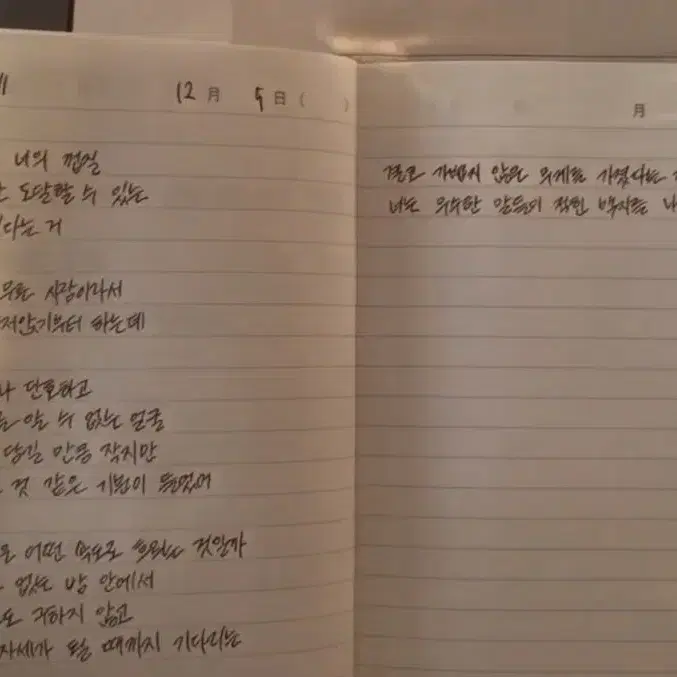 12 月 9 日 ( )
너의 껍질
도달할 수 있는
다는 거
모를 사람이라서
저앉기부터 하는데
단호하고
알 수 없는 얼굴
담길 만큼 작지만
것 같은 기분이 들었어
어떤 속도로 흐르는 것일까
없는 밤 안에서
구하지 않고
자세가 될 때까지 기다리는
月
결코 가볍지 않은 무게를 가졌다는
너는 무수한 말들이 적힌 백지를